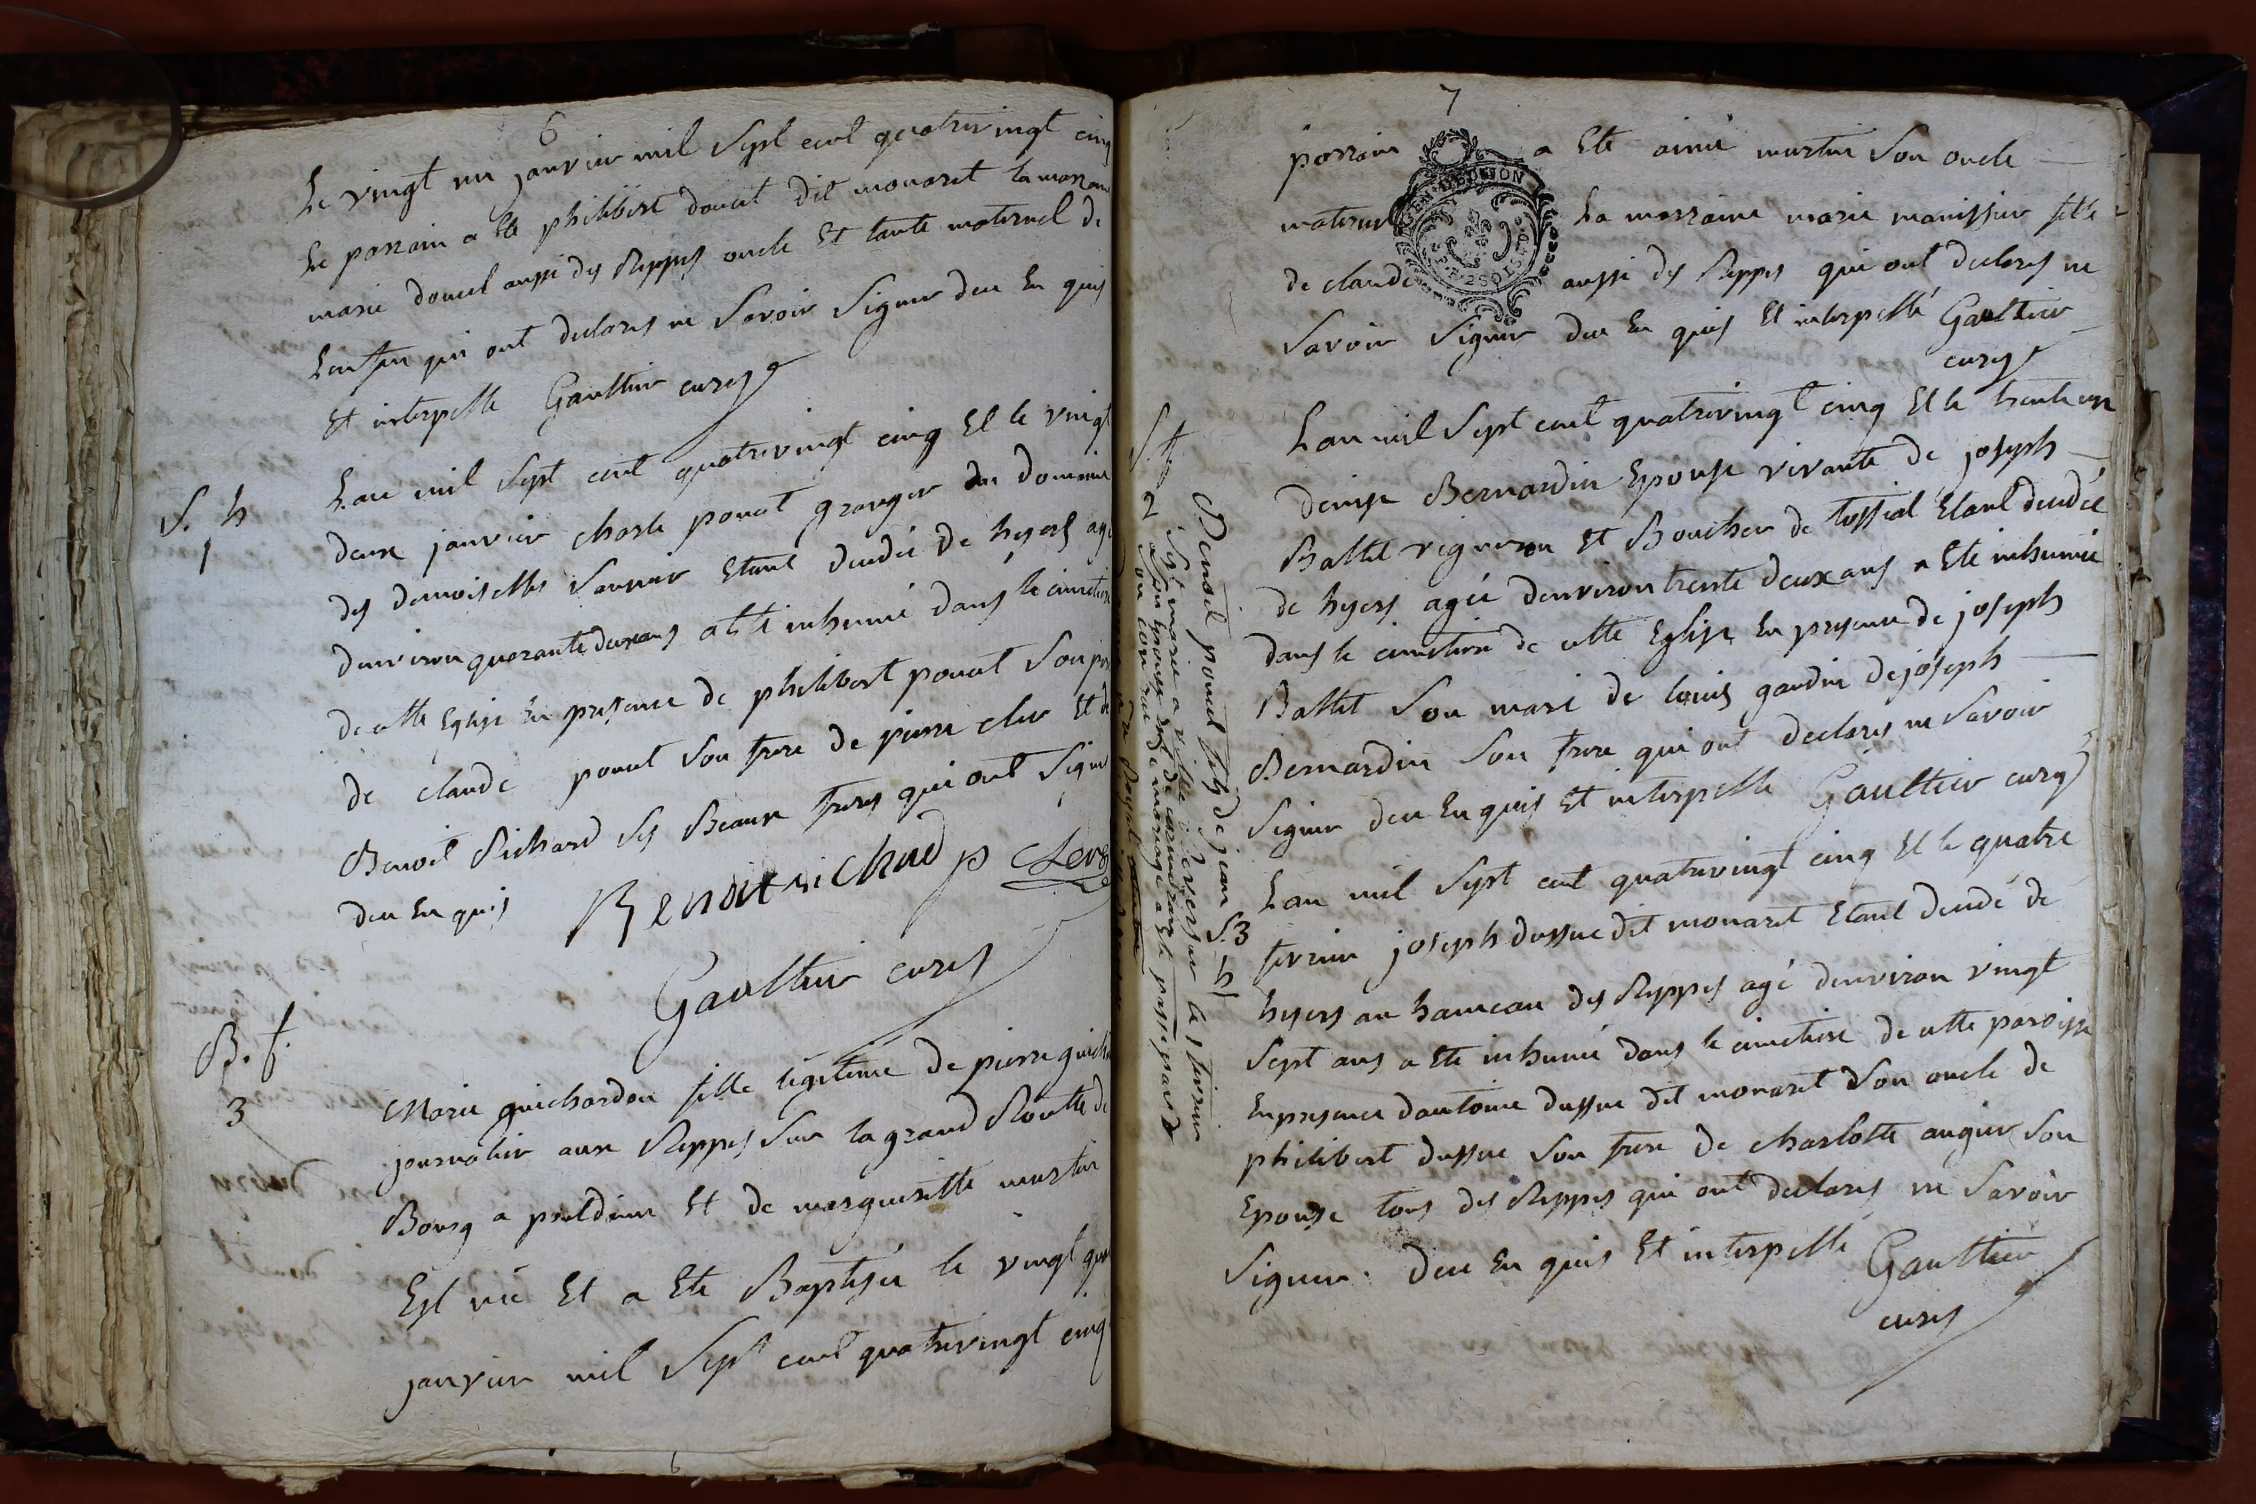 6
Le vingt un janvier mil Sept cent quatrevingt cinq
Le parrain a Ete philibert doucet dit monaret la marraine
marie doucet aussi des Reppes oncle Et tante maternel de
Lenfan qui ont declares ne Savoir Signer deu En quis
Et interpelle Gaultier curé
S. h
1
L'an mil Sept cent quatrevingt cinq Et le vingt
deux janvier charle ponat granger du domaine
des demoiselles Etant decedé de hyers agé
denviron quarante deux ans a Eté inhumé dans le cimetiere
de cette Eglise En presence de philibert ponat Son pere
de claude ponat Son frere de pierre cler Et de
Benoit Richard Ses Beaux freres qui ont Signé
deu En quis Benoit richard p Clerc
Gaultier curé
B. f.
3
Marie guichardon fille legitime de pierre
journalier aux Reppes Sur la grand Routte de
Bourg a pontdain Et de margueritte martin
Est née Et a Ete Baptisée le vingt
janvier mil Sept cent quatrevingt cinq
7
parrain a Ete aimé martin Son oncle
maternel La marraine marie manissier fille
de claude aussi des Reppes qui ont declares ne
GEN DE DIJON
2 SOLS
Savoir Signer deu En quis Et interpellé Gaultier
curé
S. f
2
L'an mil Sept cent quatrevingt cinq Et le trente un
denise Bernardin Epouse vivante de joseph
Battet vigneron Et Boucher de tossiat Etant decedée
de hyers agée denviron trente deux ans a Ete inhumée
dans le cimetiere de cette Eglise En presence de joseph
Battet Son mari de louis gaudin de joseph
Bernardin Son frere qui ont declares ne Savoir
Signer deu En quis Et interpelle Gaultier curé
Benoit ponat fils de jean
S'est marié a ville reversur le fevrier
a pour epouse
Son contrat de mariage a Ete passé pard
S. h
3
L'an mil Sept cent quatrevingt cinq Et le quatre
fevrier joseph dussuc dit monaret Etant decedé de
hyers au hameau des Reppes agé denviron vingt
Sept ans a Ete inhumé dans le cimetiere de cette paroisse
En presence dantoine dussuc dit monaret Son oncle de
philibert dussuc Son frere de charlotte augier Son
Epouse tous des Reppes qui ont declares ne Savoir
Signer deu En quis Et interpellé Gaultier
curé